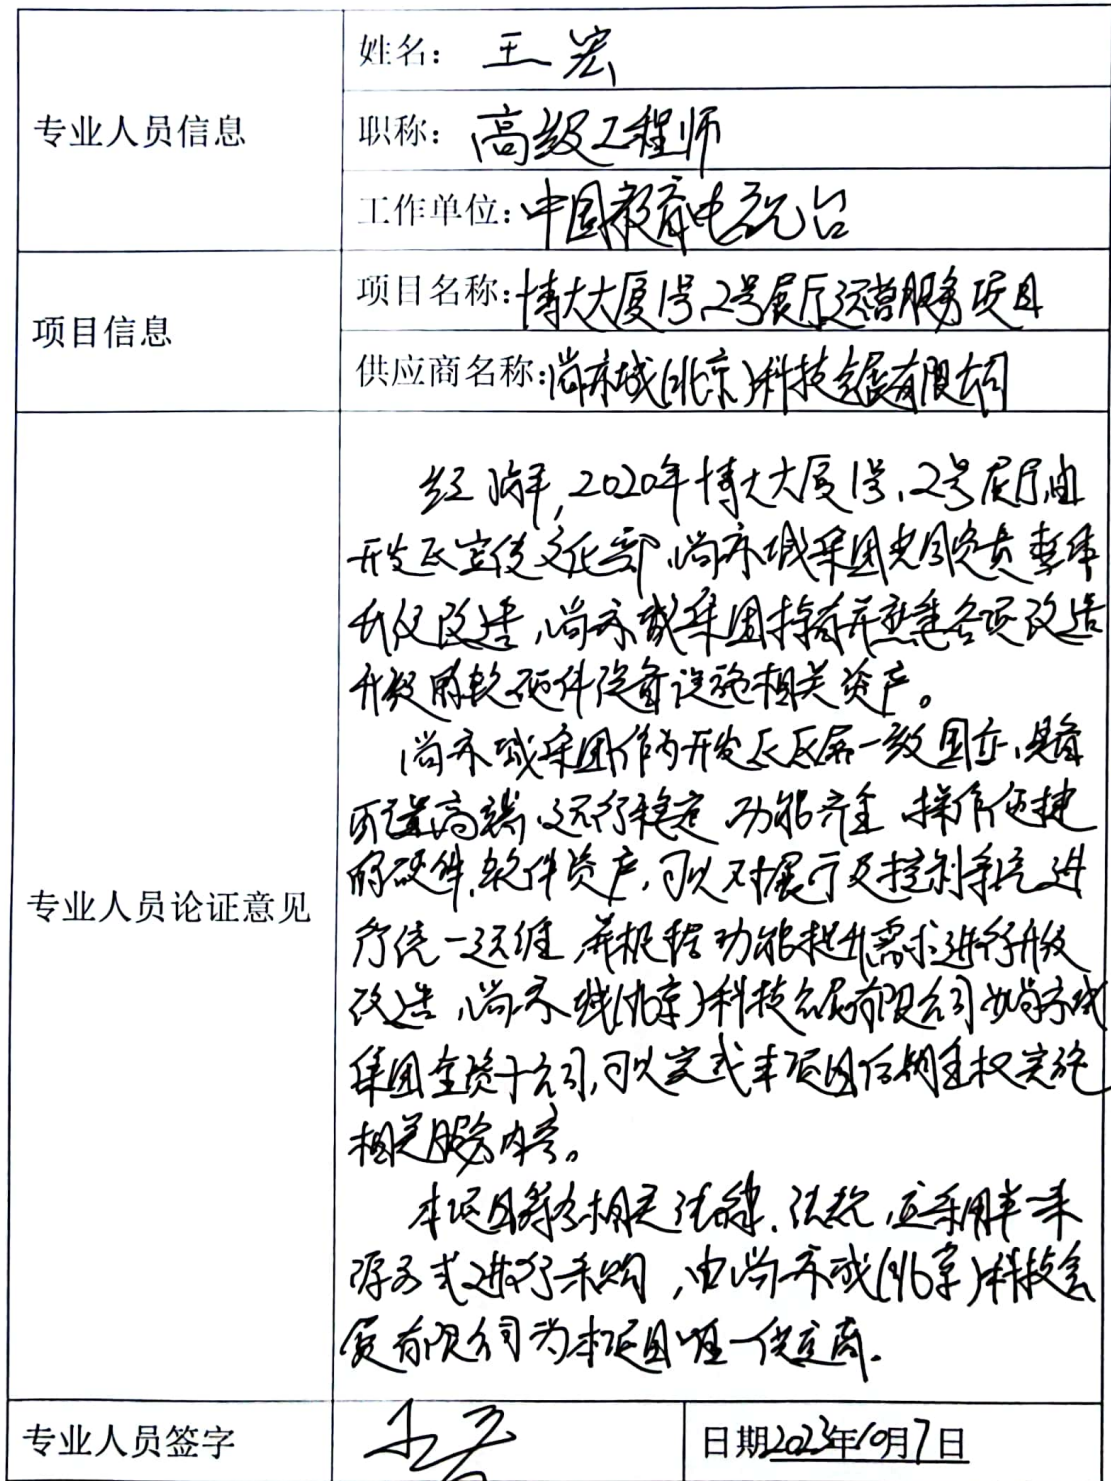 专业人员信息
姓名：王宏
职称：高级工程师
工作单位：中国教育电视台
项目信息
项目名称：博大大厦1号、2号展厅运营服务项目
供应商名称：尚亦城（北京）科技会展有限公司
专业人员论证意见
经了解，2020年博大大厦1号、2号展厅由
开发区宣传文化部、尚亦城集团共同负责整体
升级改造，尚亦城集团持有并运维各项改造
升级的软硬件设备设施相关资产。
尚亦城集团作为开发区区属一级国企，具备
配置高端、运行稳定、功能齐全、操作便捷
的硬件、软件资产，可以对展厅及控制系统进
行统一运维，并根据功能提升需求进行升级
改造，尚亦城（北京）科技会展有限公司为尚亦城
集团全资子公司，可以完成本项目后期全权实施
相关服务内容。
本项目符合相关法律、法规，应采用单一来
源方式进行采购，由尚亦城（北京）科技会
展有限公司为本项目唯一供应商。
专业人员签字
王宏
日期2023年10月7日